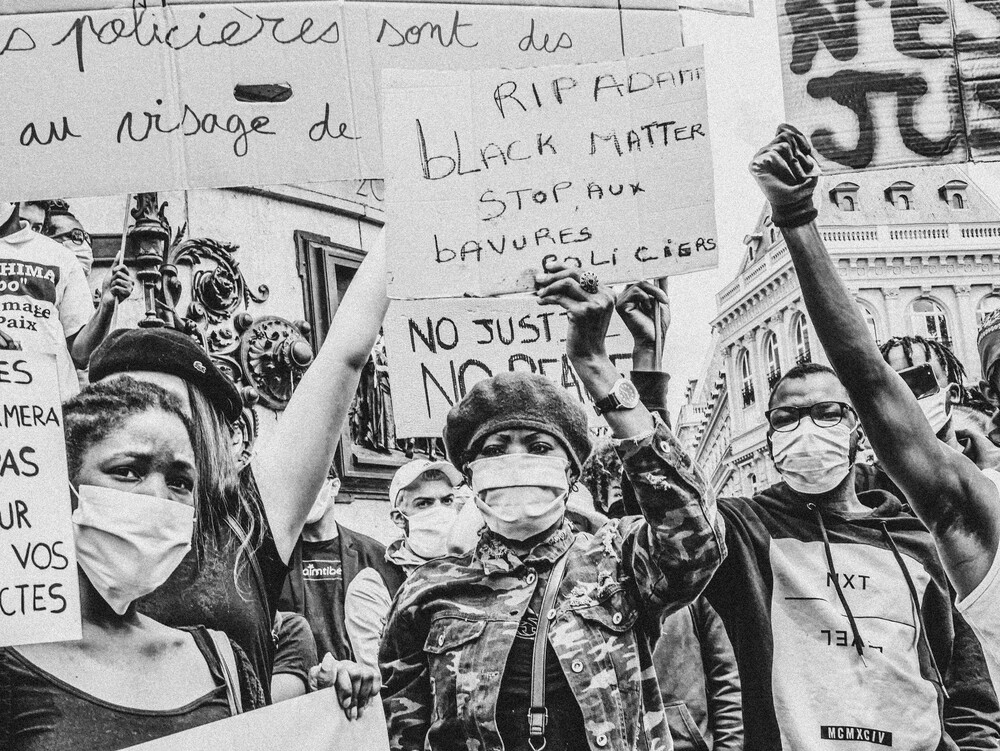 policières sont des
au visage de
RIP ADAM
bLACK MATTER
STOP AUX
bAVURES
POLICIERS
N'ES
NO JUSTI
NO PEA
HIMA
Paix
ES
AMERA
PAS
UR
VOS
CTES
NXT
MCMXCIV